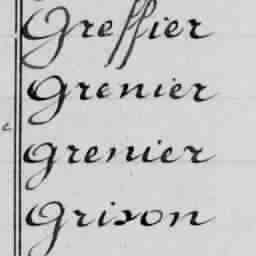 Greffier
Grenier
Grenier
Grison